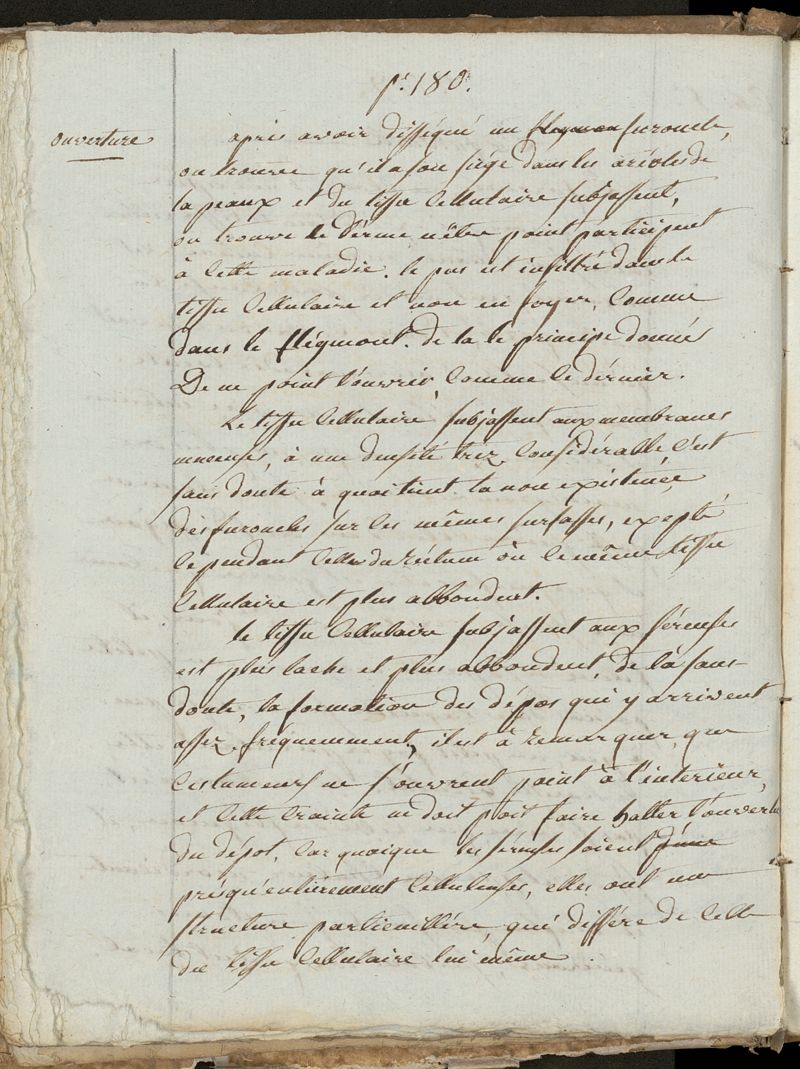 p. 180.
ouverture
après avoir disséqué un flegmon furoncle,
on trouve qu'il a son siége dans les aréoles de
la peaux et du tissu cellulaire subjassent,
on trouve le derme n'être point participent
à cette maladie. le pus est infiltré dans le
tissu cellulaire et non en foyer, comme
dans le flégmont. de la le principe donnés
De ne point l'ouvrir, comme le dérnier.
Le tissu cellulaire subjassent aux membranes
muceuses, à une densité trez considérable c'est
sans doute à quoi tient la non existence
dès furoncles sur les mêmes surfasses, exepté
cependant celles du réctum ou le même tissu
cellulaire est plus abbondent.
le tissu cellulaire subjassent aux séreuses
est plus lache et plus abbondent de là sans
doute, la formation des dépos qui y arrivent
assez fréquemment, il est à remarquer que
ces tumeurs ne s'ouvrent point à l'interieur,
et cette crainte ne doit poit faire hatter l'ouver
du dépot, car quoique les séreuses soient
présqu'entièrement celluleuses, elles ont une
structure particuillére, qui différe de celle
du tissu cellulaire lui même.